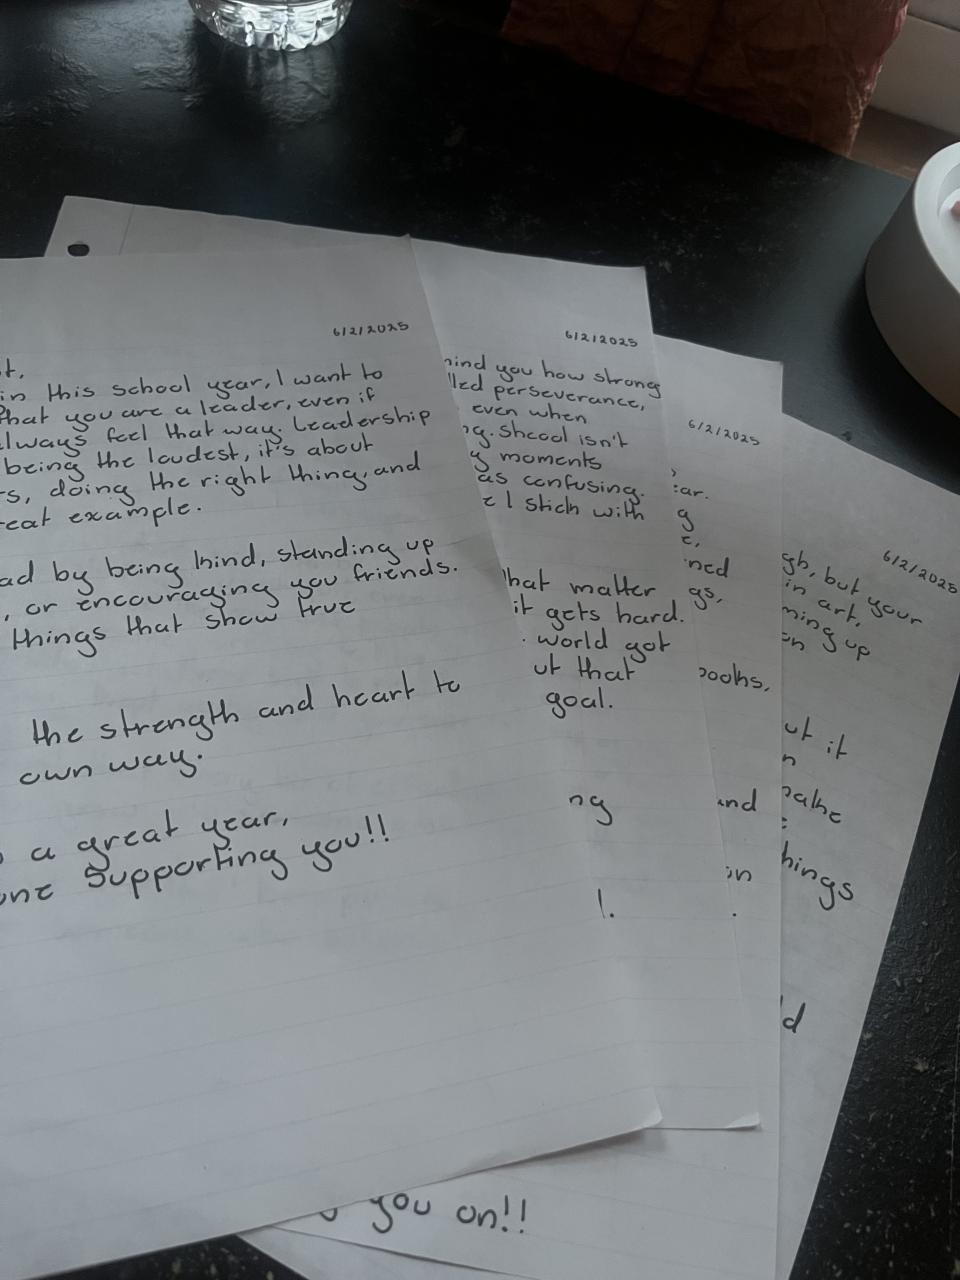 6/2/2025
in this school year, I want to
that you are a leader, even if
always feel that way. Leadership
being the loudest, it's about
doing the right thing, and
example.
by being kind, standing up
, or encouraging you friends.
things that show true
the strength and heart to
own way.
a great year,
supporting you!!
6/2/2025
you how strong
perseverance,
even when
shcool isn't
moments
as confusing.
I stick with
that matter
it gets hard.
. world got
that
goal.
ng
l.
you on!!
6/2/2025
g
books,
and
on
.
6/2/2025
, but your
in art.
up
on
it
things